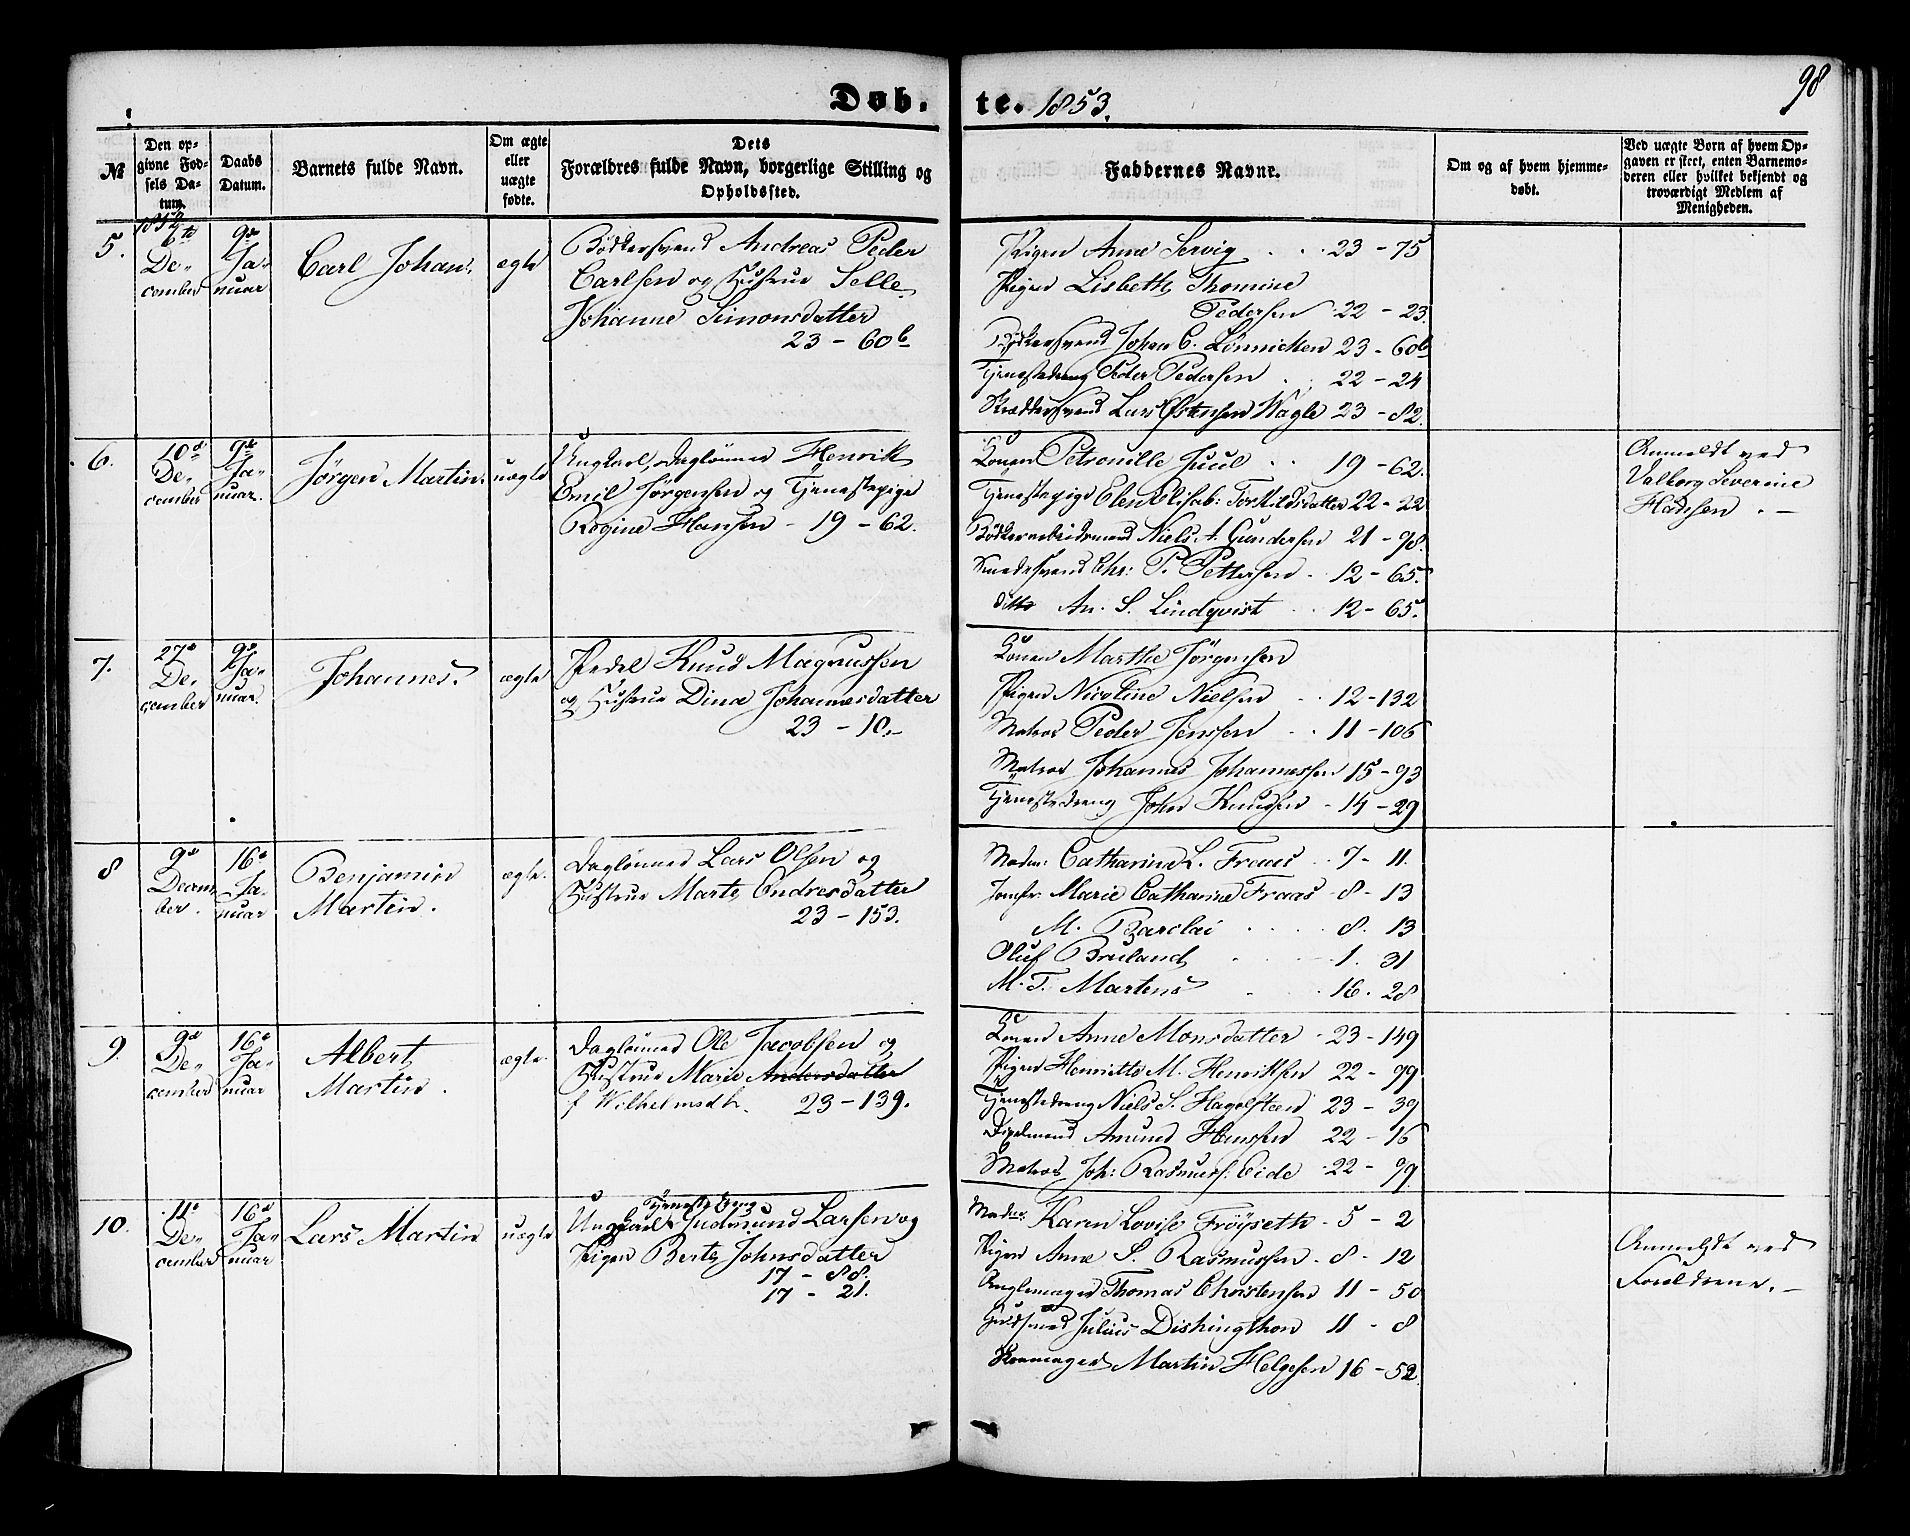 98
Døb. te. 1853.
№
Den op-
givne Fød-
sels Da-
tum.
Daabs
Datum.
Barnets fulde Navn.
Om ægte
eller
uægte
fødte.
Dets
Forældres fulde Navn, borgerlige Stilling og
Opholdssted.
Faddernes Navne.
Om og af hvem hjemme-
døbt.
Ved uægte Børn af hvem Op-
gaven er skeet, enten Barnemo-
deren eller hvilket bekjendt og
troværdigt Medlem af
Menigheden.
1852
5.
6te
De-
cember
9de
Ja-
nuar
Carl Johan.
ægte
Bødkersvend Andreas Peder
Carlsen og Hustrue Selle
Johanne Simonsdatter
23 - 60b
Pigen Anne Servig . . 23 - 75
Pigen Lisbeth Thomine
Pedersen 22 - 23.
Bødkersvend Johan C. Lönnicken 23 - 60b
Tjenestedreng Peder Pedersen . . 22 - 24
Skreddersvend Lars Østensen Wagle 23 - 82.
6.
10d
De-
cember
9de
Ja-
nuar.
Jørgen Martin.
uægte
Ungkarl, Daglönner Henrik
Emil Jørgensen og Tjenestepige
Rogine Hansen - 19 - 62.
Konen Petronille Juul . . 19 - 62.
Tjenestepige Elen Elisab: Torkildsdatter 22 - 22
Bødkerarbeidsmand Niels A. Gundersen 21 - 78.
Smedesvend Chr: P. Pettersen . . 12 - 65.
ditto An. S. Lindqvist . . 12 - 65.
Anmeldt ved
Valborg Severine
Hansen . -
7.
27d
De-
cember
9de
Ja-
nuar.
Johannes.
ægte
Pedel Knud Magnussen
og Hustrue Dina Johannesdatter
23 - 10.-
Konen Marthe Jörgensen
Pigen Nicoline Nielsen . . 12 - 132
Matros Peder Jenssen . . 11 - 106
Matros Johannes Johannessen 15 - 93
Tjenestedreng John Knudsen . 14 - 29
8
9d
Decem-
ber.
16d
Ja-
nuar
Benjamin
Martin.
ægte.
Daglönner Lars Olsen og
Hustrue Marte Endresdatter
23 - 153.
Madm: Catharine L. Fraas . . 7 - 11.
Jomfr. Marie Catharine Fraas 8 - 13
M. Barclai . . . . 8. 13
Oluf Bruland . . . 1. 31
M. T. Martens . . . 16. 28
9.
9d
De-
cember
16d
Ja-
nuar
Albert
Martin.
ægte.
Daglönner Ole Jacobsen og
Hustrue Marie Andersdatter
f Wilhelmsdtr. 23 - 139.
Konen Anne Monsdatter . 23 - 149
Pigen Henriette M. Henriksen 22 - 99
Tjenestedreng Niels S. Hagelsteen 23 - 39
Dixelmand Amund Hanssen 22 - 16
Matros Joh: Rasmuss: Eide . 22 - 99
10.
11d
De-
cember
16d
Ja-
nuar
Lars Martin
uægte
Tjenestedreng
Ungkarl Gudmund Larsen og
Pigen Berte Johnsdatter
17 - 88.
17 - 21.
Madm: Karen Lovise Fröyseth . 5 - 2
Pigen Anne S. Rasmussen . 8 - 12
Anglemager Thomas Christensen 11 - 50
Guldsmed Julius Dishingthon 11 - 8
Skomager Martin Helgesen 16 - 52
Anmeldt ved
Forældrene. -